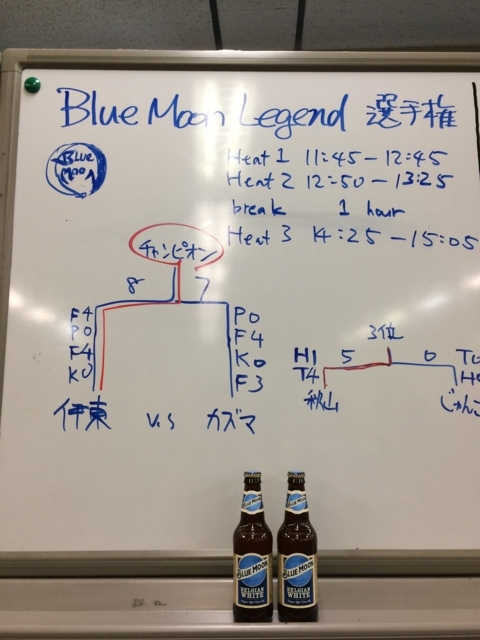 Blue Moon Legend 選手権
BLUE
MOON
Heat 1 11:45 - 12:45
Heat 2 12:50 - 13:25
break 1 hour
Heat 3 14:25 - 15:05
チャンピオン
8 7
F4
P0
F4
K0
P0
F4
K0
F3
伊東 v.s カズマ
3位
H1 5 0
T4
秋山
BLUE MOON
BELGIAN
WHITE
BLUE MOON
BELGIAN
WHITE